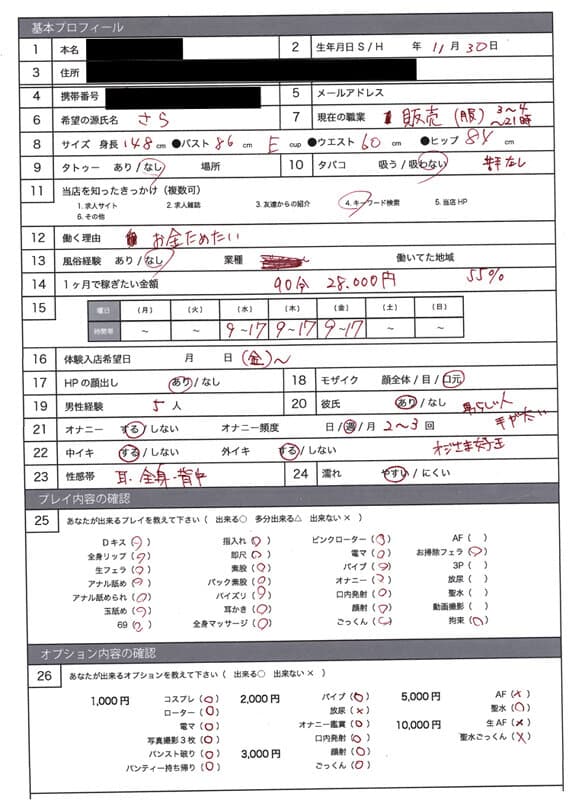 基本プロフィール
1 本名 2 生年月日 S / H 年 11月 30日
3 住所
4 携帯番号 5 メールアドレス
6 希望の源氏名 さら 7 現在の職業 販売 (服) 3〜4 〜21時
8 サイズ 身長 148 cm ●バスト 86 cm E cup ●ウエスト 60 cm ●ヒップ 84 cm
9 タトゥー あり / なし 場所 10 タバコ 吸う / 吸わない なし
11 当店を知ったきっかけ（複数可）
1. 求人サイト 2. 求人雑誌 3. 友達からの紹介 4. キーワード検索 5. 当店HP
6. その他
12 働く理由 お金ためたい
13 風俗経験 あり / なし 業種 働いてた地域
14 1ヶ月で稼ぎたい金額 90分 28.000円 55%
15 曜日 (月) (火) (水) (木) (金) (土) (日)
時間帯 〜 〜 9〜17 9〜17 9〜17 〜 〜
16 体験入店希望日 月 日 (金)〜
17 HPの顔出し あり / なし 18 モザイク 顔全体 / 目 / 口元
19 男性経験 5 人 20 彼氏 あり / なし
21 オナニー する / しない オナニー頻度 日 / 週 / 月 2〜3 回
22 中イキ する / しない 外イキ する / しない
23 性感帯 耳・全身・背中 24 濡れ やすい / にくい
プレイ内容の確認
25 あなたが出来るプレイを教えて下さい（ 出来る○ 多分出来る△ 出来ない× ）
Dキス (○) 指入れ (○) ピンクローター (○) AF ( )
全身リップ (○) 即尺 (○) 電マ (○) お掃除フェラ (○)
生フェラ (○) 素股 (○) バイブ (○) 3P ( )
アナル舐め (○) バック素股 (○) オナニー (○) 放尿 ( )
アナル舐められる (○) パイズリ (○) 口内発射 (○) 聖水 ( )
玉舐め (○) 耳かき (○) 顔射 (○) 動画撮影 ( )
69 (○) 全身マッサージ (○) ごっくん (○) 拘束 (○)
オプション内容の確認
26 あなたが出来るオプションを教えて下さい（ 出来る○ 出来ない× ）
1,000円 コスプレ (○) 2,000円 バイブ (○) 5,000円 AF (×)
ローター (○) 放尿 (×) 聖水 (○)
電マ (○) オナニー鑑賞 (○) 10,000円 生AF (×)
写真撮影3枚 (○) 口内発射 (○) 聖水ごっくん (×)
パンスト破り (○) 3,000円 顔射 (○)
パンティー持ち帰り (○) ごっくん (○)